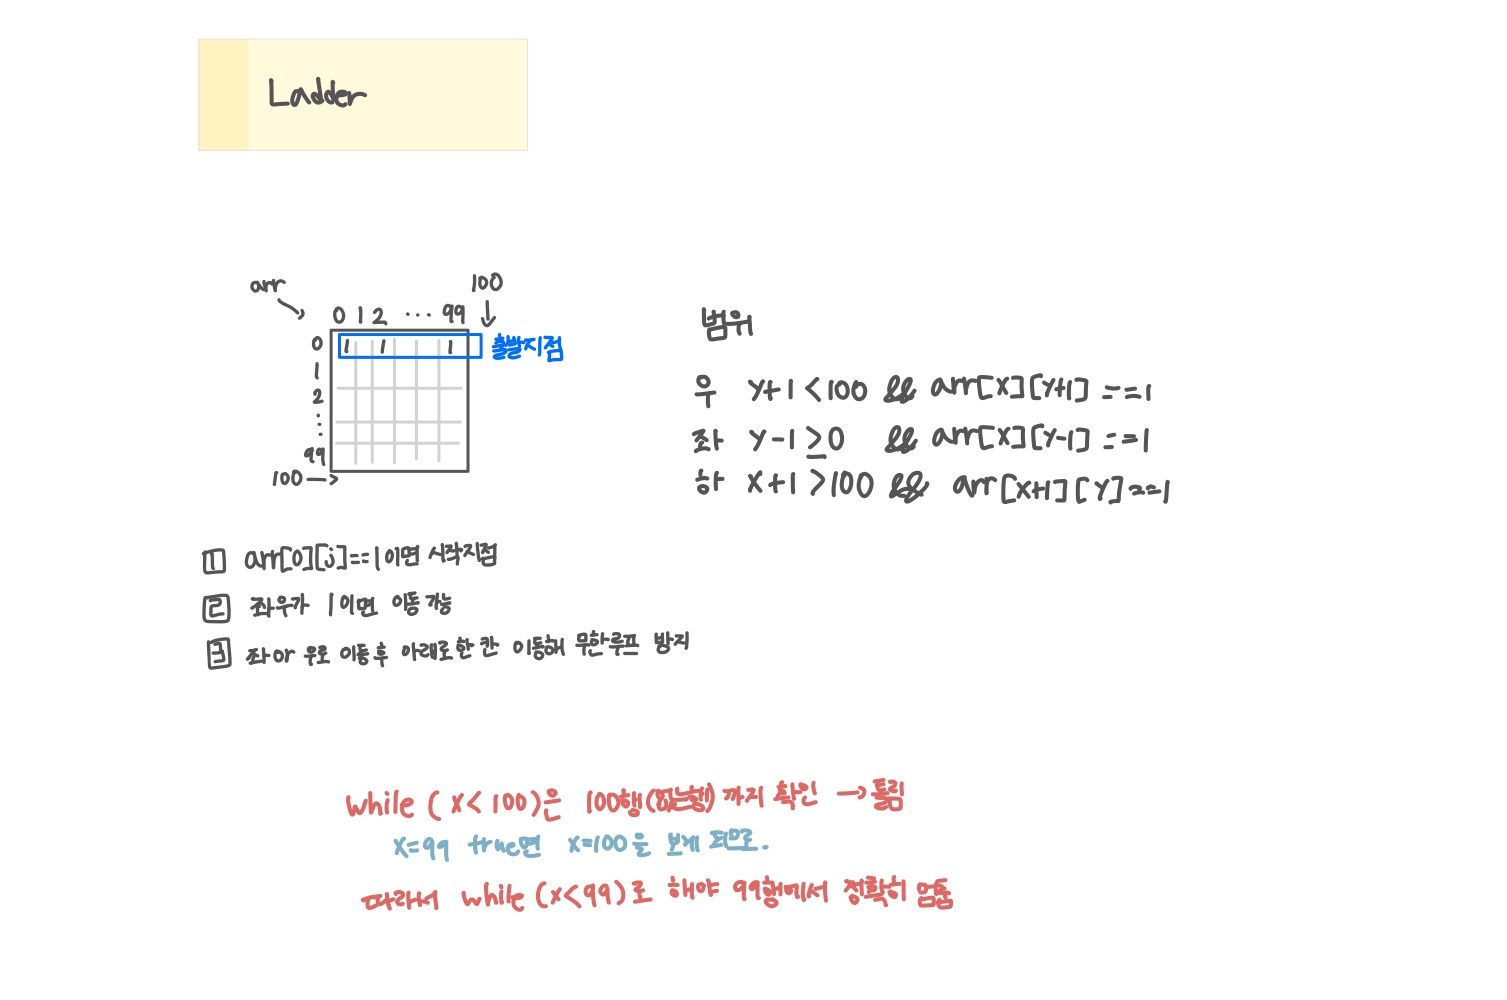 Ladder
arr
100
0 1 2 ... 99
0 1 1 1 출발지점
1
2
:
99
100
범위
우 y+1 < 100 && arr[x][y+1] ==1
좌 y-1 ≥ 0 && arr[x][y-1] ==1
하 x+1 > 100 && arr[x+1][y]==1
1 arr[0][j]==1이면 시작지점
2 좌우가 1이면 이동 가능
3 좌 or 우로 이동 후 아래로 한 칸 이동해 무한루프 방지
while ( x < 100)은 100행(없는행) 까지 확인 → 틀림
x=99 true면 x=100을 보게 되므로.
따라서 while (x<99)로 해야 99행에서 정확히 멈춤